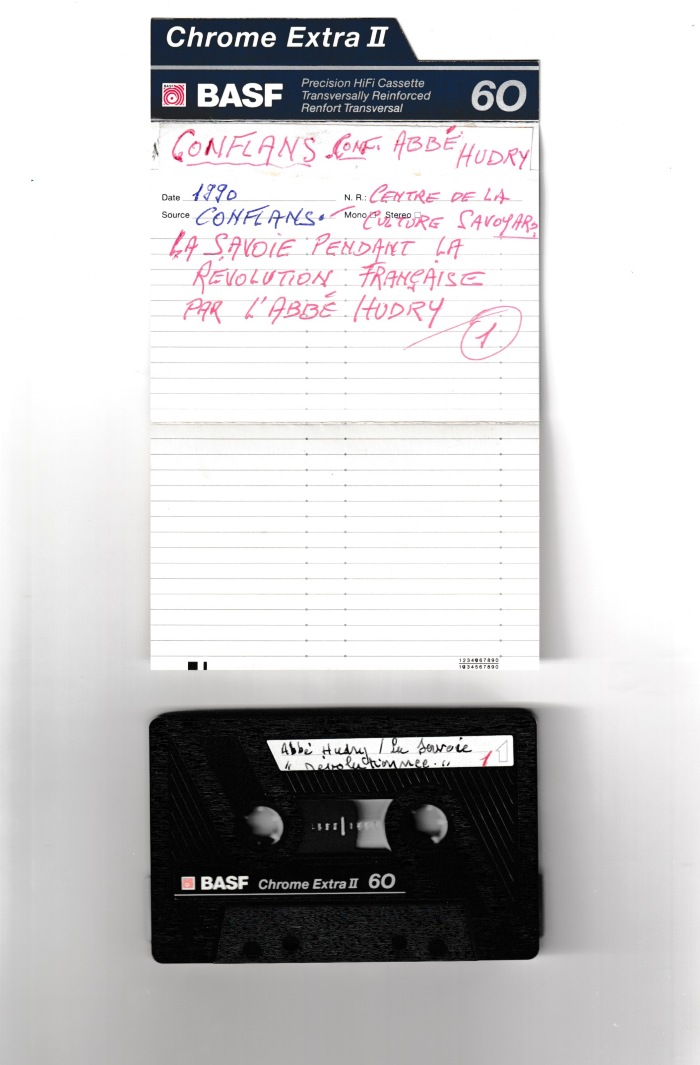 Chrome Extra II
BASF
Precision HiFi Cassette
Transversally Reinforced
Renfort Transversal
60
CONFLANS. CONF. ABBÉ HUDRY
Date 1990
N. R.: CENTRE DE LA
Source CONFLANS.
Mono Stereo
CULTURE SAVOYARD
LA SAVOIE PENDANT LA
RÉVOLUTION FRANÇAISE
PAR L'ABBÉ HUDRY
1
1234567890
1234567890
Abbé Hudry / La Savoie
" Révolutionnée. "
1
BASF Chrome Extra II 60